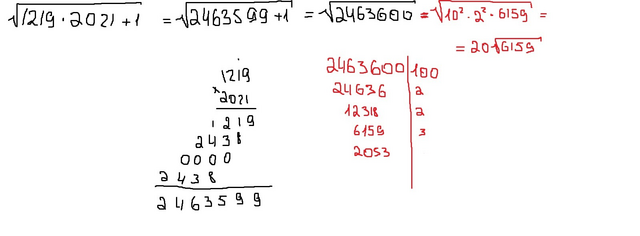 √1219·2021+1 = √2463599+1 = √2463600 = √10²·2²·6159 =
= 20√6159
1219
×2021
1219
2438
0000
2438
2463599
2463600 | 100
24636 | 2
12318 | 2
6159 | 3
2053